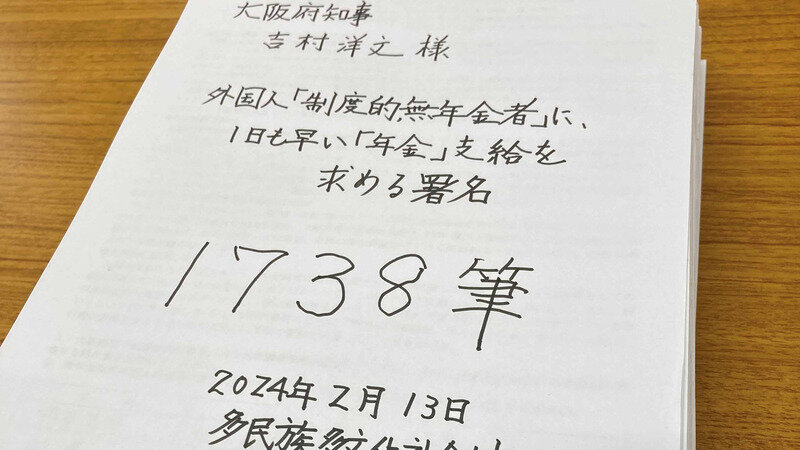 大阪府知事
吉村洋文 様
外国人「制度的無年金者」に、
1日も早い「年金」支給を
求める署名
1738筆
2024年2月13日
多民族多文化社会